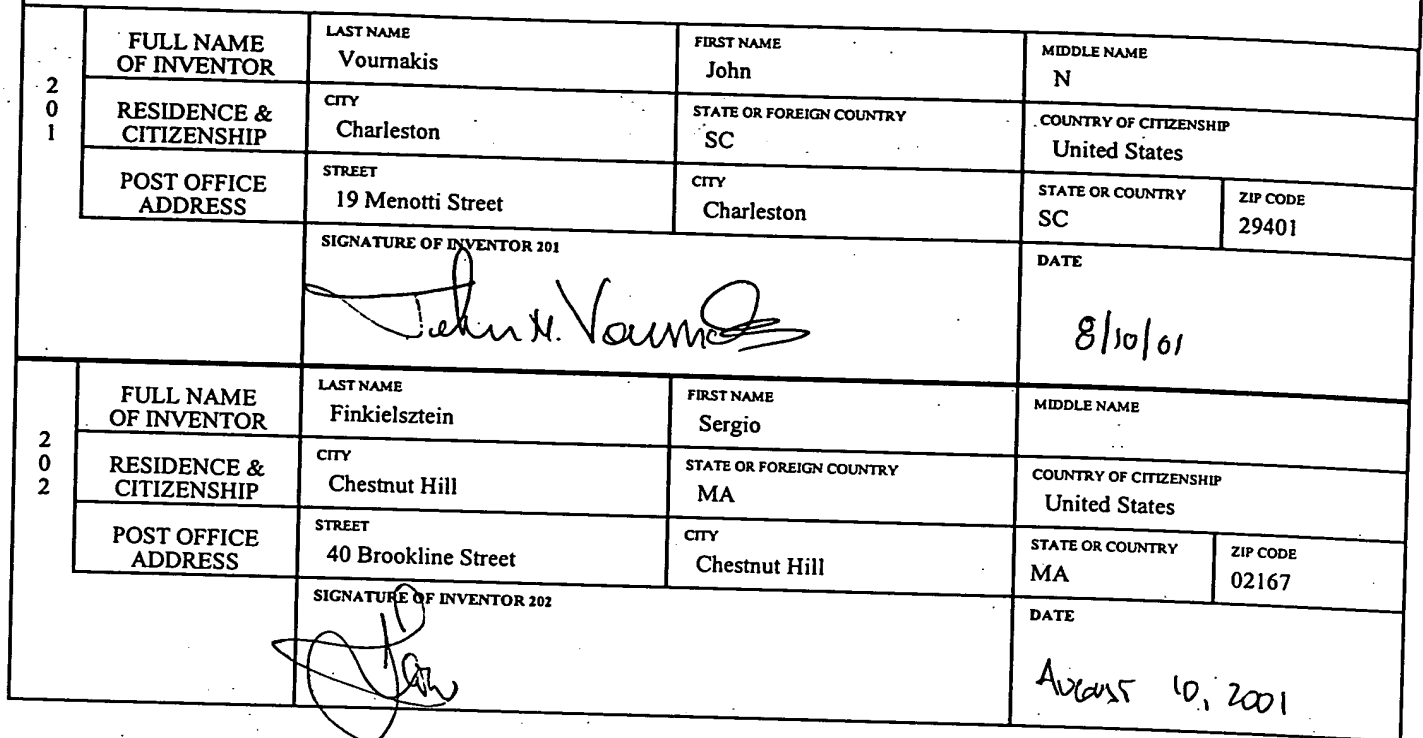 201
FULL NAME OF INVENTOR
LAST NAME
Vournakis
FIRST NAME
John
MIDDLE NAME
N
RESIDENCE & CITIZENSHIP
CITY
Charleston
STATE OR FOREIGN COUNTRY
SC
COUNTRY OF CITIZENSHIP
United States
POST OFFICE ADDRESS
STREET
19 Menotti Street
CITY
Charleston
STATE OR COUNTRY
SC
ZIP CODE
29401
SIGNATURE OF INVENTOR 201
John N. Vournakis
DATE
8/10/01
202
FULL NAME OF INVENTOR
LAST NAME
Finkielsztein
FIRST NAME
Sergio
MIDDLE NAME
RESIDENCE & CITIZENSHIP
CITY
Chestnut Hill
STATE OR FOREIGN COUNTRY
MA
COUNTRY OF CITIZENSHIP
United States
POST OFFICE ADDRESS
STREET
40 Brookline Street
CITY
Chestnut Hill
STATE OR COUNTRY
MA
ZIP CODE
02167
SIGNATURE OF INVENTOR 202
DATE
August 10, 2001